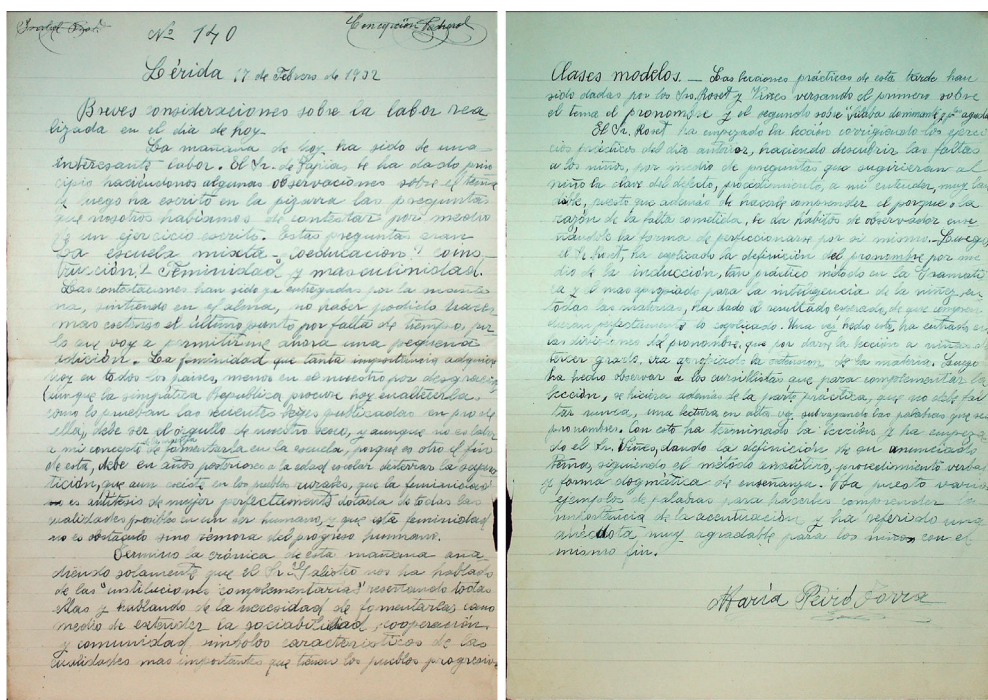 Nº 140
Concepción
Lérida 17 de Febrero de 1932
Breves consideraciones sobre la labor rea
lizada en el día de hoy.
La mañana de hoy ha sido de una
interesante labor. El Sr. de le ha dado prin
cipio haciéndonos algunas observaciones sobre el tema
y luego ha escrito en la pizarra las preguntas
que nosotros habíamos de contestar por medio
de un ejercicio escrito. Estas preguntas eran
La escuela mixta "coeducación" coins
trucción". Feminidad y masculinidad.
Las contestaciones han sido ya entregadas por la maña
na, sintiendo en el alma, no haber podido hacer
mas extenso el último punto por falta de tiempo, por
lo que voy a permitirme ahora una pequeña
adición. La feminidad que tanta importancia adquiere
hoy en todos los paises, menos en el nuestro por desgracia
(aunque la simpática República procure hoy
como lo prueban las recientes leyes publicadas en pro de
ella) debe ser el orgullo de nuestro sexo, y aunque no es labor
a mi concepto de fomentarla en la escuela, porque es otro el fin
de esta, debe en años posteriores a la edad escolar desterrar la supers
tición, que aun existe en los pueblos rurales, que la feminidad
es antítesis de mujer perfectamente dotada de todas las
cualidades posibles en un ser humano, y que esta feminidad
no es obstáculo sino señora del progreso humano.
Termino la crónica de esta mañana aña
diendo solamente que el Sr. Galisteo nos ha hablado
de las "instituciones complementarias" reseñando todas
ellas y hablando de la necesidad de fomentarlas como
medio de extender la sociabilidad, cooperación
y comunidad, símbolos característicos de las
cualidades mas importantes que tienen los pueblos progresivos
Clases modelos. — Las lecciones prácticas de esta tarde han
sido dadas por los Srs. Roset y Vives versando el primero sobre
el tema el pronombre y el segundo sobre "sílaba dominante y aguda
El Sr. Roset ha empezado la lección corrigiendo los ejerci
cios prácticos del día anterior, haciendo descubrir las faltas
a los niños, por medio de preguntas que sugirieran al
niño la clave del defecto, procedimiento, a mi entender, muy lau
dable, puesto que además de hacerle comprender el porque o la
razón de la falta cometida, le da hábitos de observador ense
ñándole la forma de perfeccionarse por si mismo. — Luego
el Sr. Roset, ha explicado la definición del pronombre por me
dio de la inducción, tan práctico método en la Gramáti
ca y el mas apropiado para la inteligencia de la niñez, en
todas las materias, ha dado el resultado esperado, de que compren
dieran perfectamente lo explicado. Una vez hecho esto, ha entrado en
las divisiones de pronombre, que por darse la lección a niños de
tercer grado, era apropiado la extensión de la materia. Luego
ha hecho observar a los cursillistas que para complementar la
lección, se hiciera además de la parte práctica, que no debe fal
tar nunca, una lectura en alta voz subrayando las palabras que sean
pronombre. Con esto ha terminado la lección y ha empeza
do el Sr. Vives, dando la definición de su anunciado
tema, siguiendo el método analítico, procedimiento verbal
y forma dogmática de enseñanza. Ha puesto varios
ejemplos de palabras para hacerles comprender la
importancia de la acentuación y ha referido una
anécdota muy agradable para los niños con el
mismo fin.
María Peiró